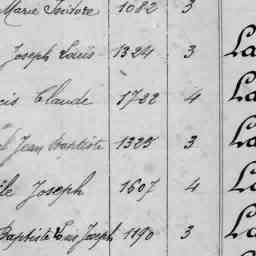 Marie Isidore 1082 3
Joseph Louis 1324 3 La
cis Claude 1782 4 La
Jean Baptiste 1325 3 La
Joseph 1607 4 La
Baptiste Louis Joseph 1190 3 La